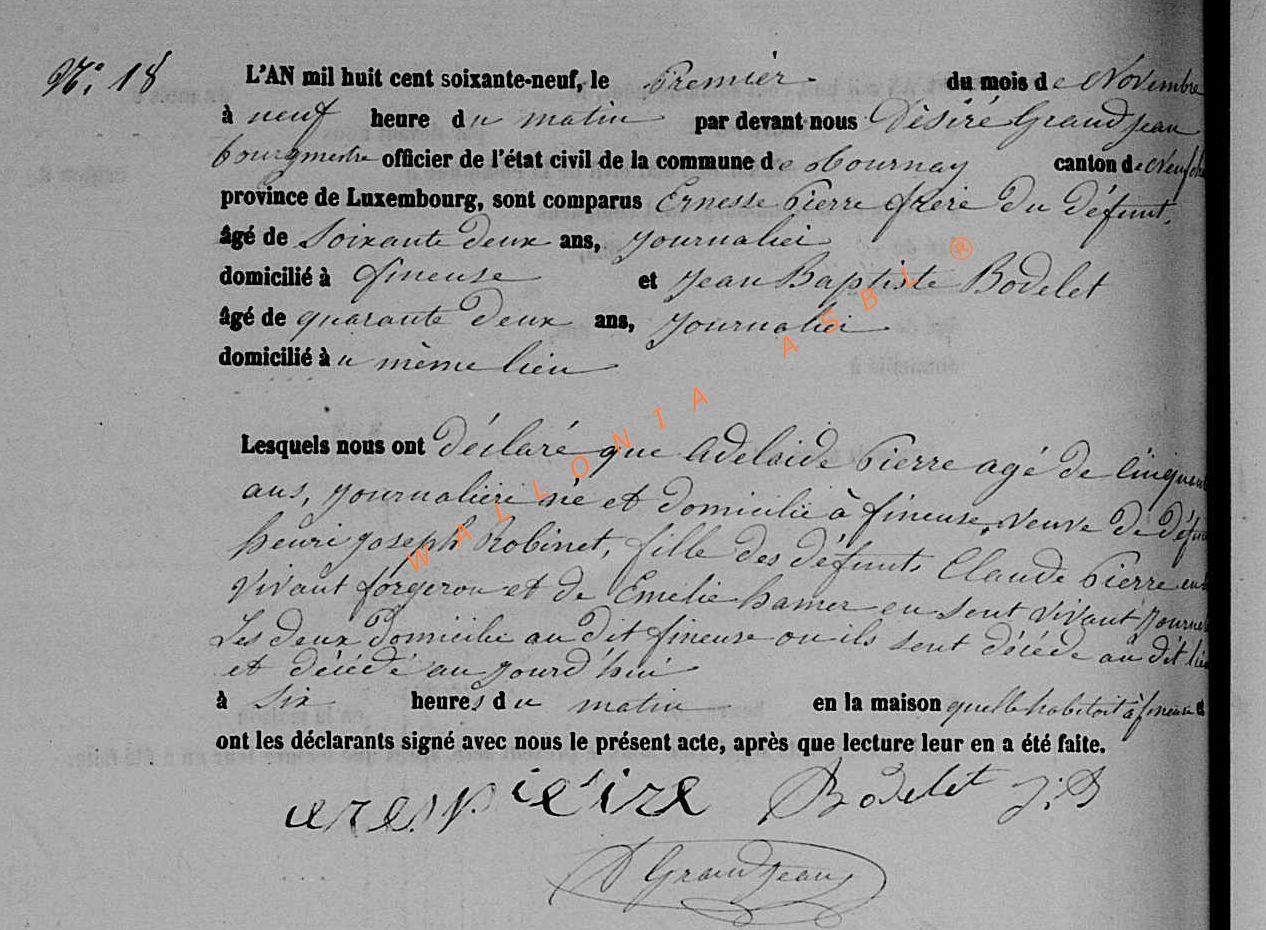 N.o 18
L'AN mil huit cent soixante-neuf, le Premier du mois de Novembre
à neuf heure du matin par devant nous Désiré Grandjean
bourgmestre officier de l'état civil de la commune de Tournay canton de Neufchâ
province de Luxembourg, sont comparus Ernesse Pierre frère du défunt,
âgé de Soixante deux ans, journalier
domicilié à fineuse et Jean Baptiste Bodelet
âgé de quarante deux ans, journalier
domicilié à u même lieu
Lesquels nous ont déclaré que Adelaide Pierre agé de Cinquant
ans, journalière né et domicilié à fineuse, veuve de défu
henri joseph Robinet, fille des défunts Claude Pierre en
vivant forgeron et de Emelie hamer en sont vivant journal
Les deux domicilie au dit fineuse ou ils sont décéde au dit lieu
et décédé aujourd'hui
à six heures du matin en la maison quelle habitoit à fineuse &
ont les déclarants signé avec nous le présent acte, après que lecture leur en a été faite.
Bodelet J:B
D Grandjean
WALLONIA ASBL ®